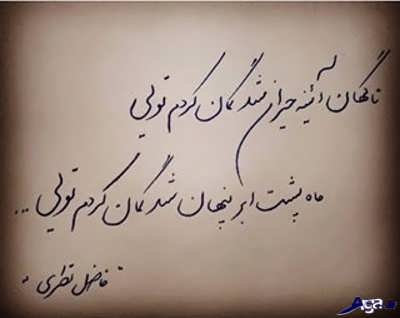 ناگهان آئینه حیران شد گمان کردم تویی
ماه پشت ابر پنهان شد گمان کردم تویی...
"فاضل نظری"
Aga